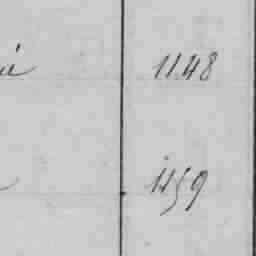 1148
1159